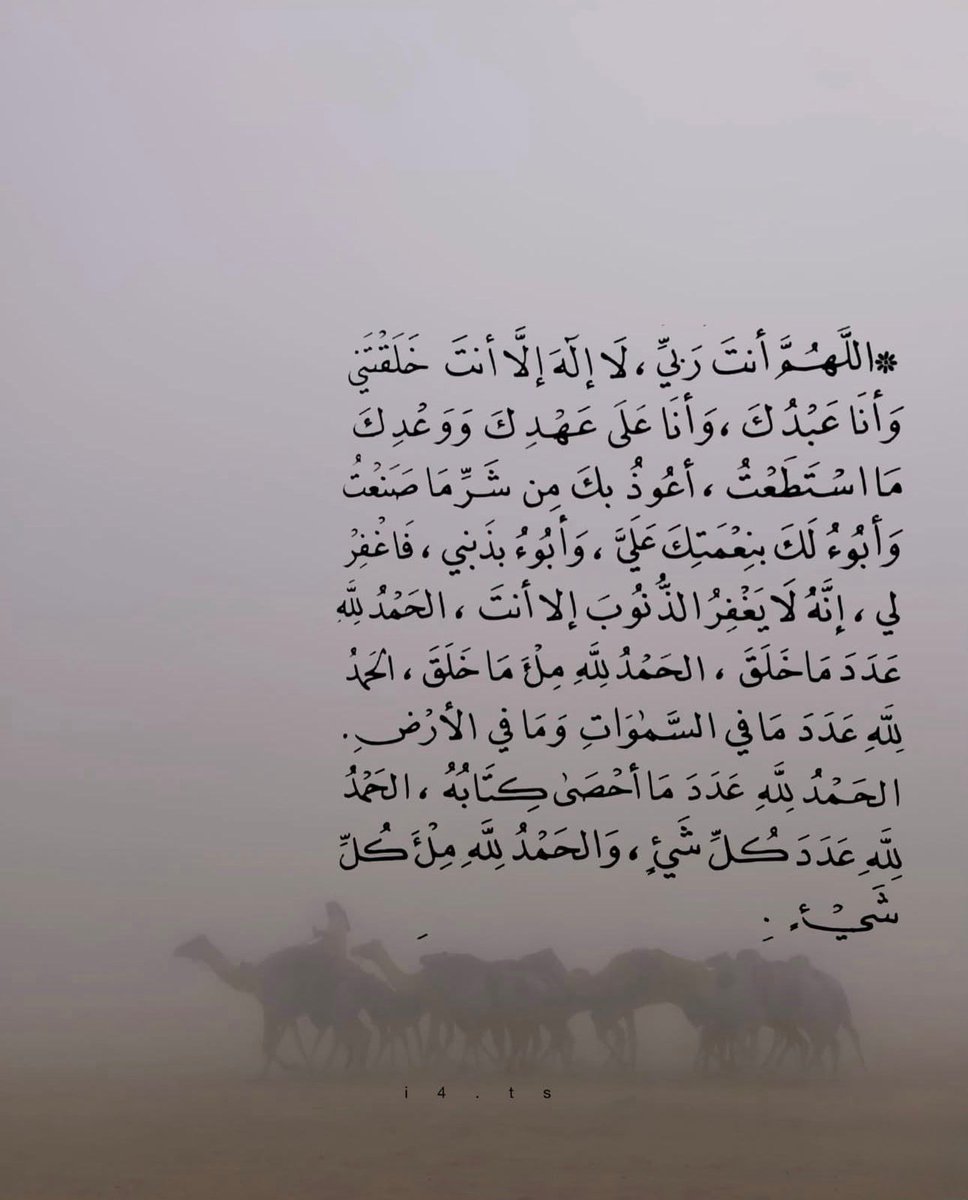 *اللَّهُمَّ أنتَ رَبِّيِّ ، لَا إِلَهَ إِلَّا أنتَ خَلَقْتَنِي
وَأَنَا عَبْدُكَ ، وَأَنَا عَلَى عَهْدِكَ وَوَعْدِكَ
مَا اسْتَطَعْتُ ، أَعُوذُ بِكَ مِن شَرِّ مَا صَنَعْتُ
وَأَبُوءُ لَكَ بِنِعْمَتِكَ عَلَيَّ ، وَأَبُوءُ بِذَنبِي ، فَاغْفِرْ
لي ، إِنَّهُ لَا يَغْفِرُ الذُّنُوبَ إلا أنتَ ، الحَمْدُ لِلَّهِ
عَدَدَ مَا خَلَقَ ، الحَمْدُ لِلَّهِ مِلْءَ مَا خَلَقَ ، الحَمْدُ
لِلَّهِ عَدَدَ مَا فِي السَّمٰوَاتِ وَمَا فِي الأَرْضِ .
الحَمْدُ لِلَّهِ عَدَدَ مَا أَحْصَىٰ كِتَابُهُ ، الحَمْدُ
لِلَّهِ عَدَدَ كُلِّ شَيْءٍ ، وَالحَمْدُ لِلَّهِ مِلْءَ كُلِّ
شَيْءٍ .
i4.ts